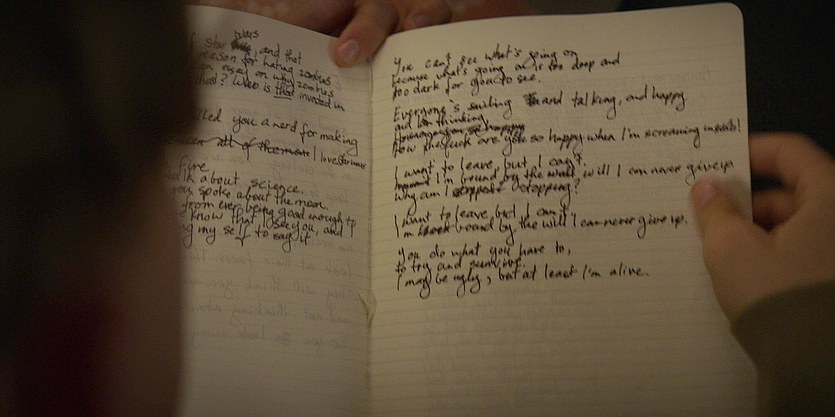 wars
f star, and that
reason for hating zombies
an essay on why zombies
? Who is that invested in
you a nerd for making
all of them I love
Fire
about science.
you spoke about the moon.
from ever being good enough to
know that I see you, and
ng my self to say it
You can't see what's going on
because what's going on is too deep and
too dark for you to see.
Everyone's smiling and talking, and happy
and I'm thinking,
How the fuck are you so happy when I'm screaming inside!
I want to leave, but I can't.
I'm bound by the will I can never give up
Why am I stopping?
I want to leave, but I can't
I'm bound by the will I can never give up.
You do what you have to,
to try and survive.
I may be ugly, but at least I'm alive.